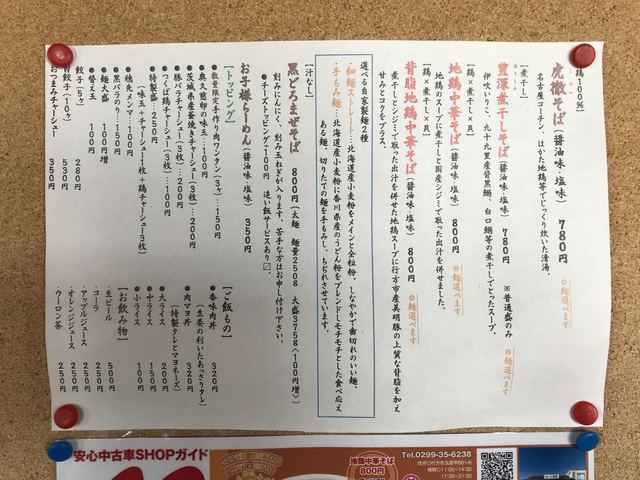 鶏100%
虎徹そば（醤油味 塩味） 780円 ◎麺選べます
名古屋コーチン、はかた地鶏等でじっくり炊いた清湯。
【煮干し】
豊潔煮干しそば（醤油味 塩味） 780円 ※普通盛のみ ◎麺選べます
伊吹いりこ、九十九里産背黒鰯、白口鰯等の煮干しでとったスープ。
【鶏×煮干し×貝】
地鶏中華そば（醤油味 塩味） 800円 ◎麺選べます
地鶏のスープに煮干しと国産シジミで取った出汁を併せました。
【鶏×煮干し×貝】
背脂地鶏中華そば（醤油味 塩味） 800円 ◎麺選べます
煮干しとシジミで取った出汁を併せた地鶏スープに行方市産美明豚の上質な背脂を加え
甘みとコクをプラス。
選べる自家製麺2種
・細麺ストレート…北海道産小麦粉をメインと全粒粉、しなやかで歯切れのいい麺。
・手もみ麺…北海道産小麦粉に香川県産のうどん粉をブレンドしモチモチとした食べ応え
ある麺。切りたての麺を手もみし、ちぢれさせています。
【汁なし】
黒どろまぜそば 800円（太麺 麺量250g 大盛375g〈100円増〉）
刻みにんにく、刻み玉ねぎが入ります。苦手な方はお申し付け下さい。
●チーズトッピング+100円 追い飯サービスあり〼
お子様らーめん（醤油味 塩味） 350円
【トッピング】
●数量限定手作り肉ワンタン（3ヶ）…150円
●奥久慈卵の味玉…100円
●茨城県産豚釜焼きチャーシュー（3枚）…250円
●豚バラチャーシュー（3枚）…200円
●つくば鶏チャーシュー（3枚）…100円
●特製盛り 250円
（味玉+チャーシュー1枚+鶏チャーシュー3枚）
●穂先メンマ…100円
●黒バラのり…150円
●麺大盛 100円増
●替え玉 100円
餃子（5ヶ） 280円
餃子（10ヶ） 530円
おつまみチャーシュー 350円
【ご飯もの】
●香味肉丼 320円
（生姜の利いたあっさりタレ）
●肉マヨ丼 320円
（特製タレとマヨネーズ）
●大ライス 200円
●中ライス 150円
●小ライス 100円
【お飲み物】
・生ビール 500円
・コーラ 250円
・アップルジュース 250円
・オレンジジュース 250円
・ウーロン茶 250円
安心中古車SHOPガイド
地鶏中華そば
800円
Tel.0299-35-6238
11:00~14:30
17:30~21:30